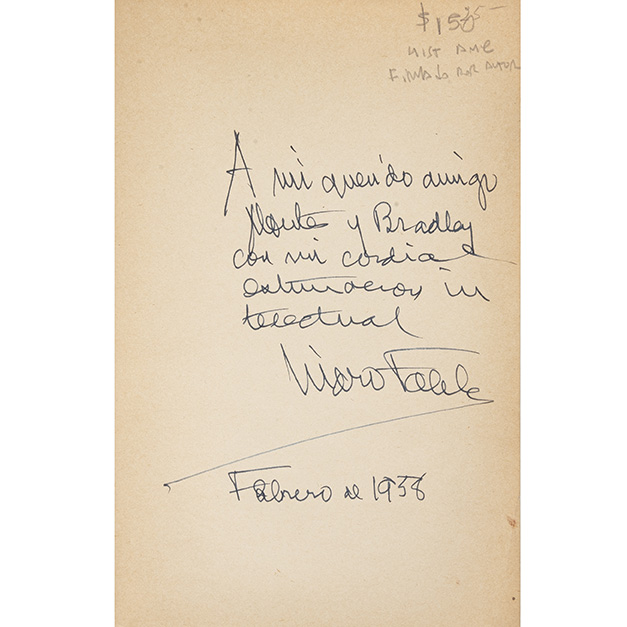 $15
HIST AME
FIRMADO POR AUTOR
A mi querido amigo
y Bradley
con mi cordial
estimacion in
telectual
Febrero de 1958